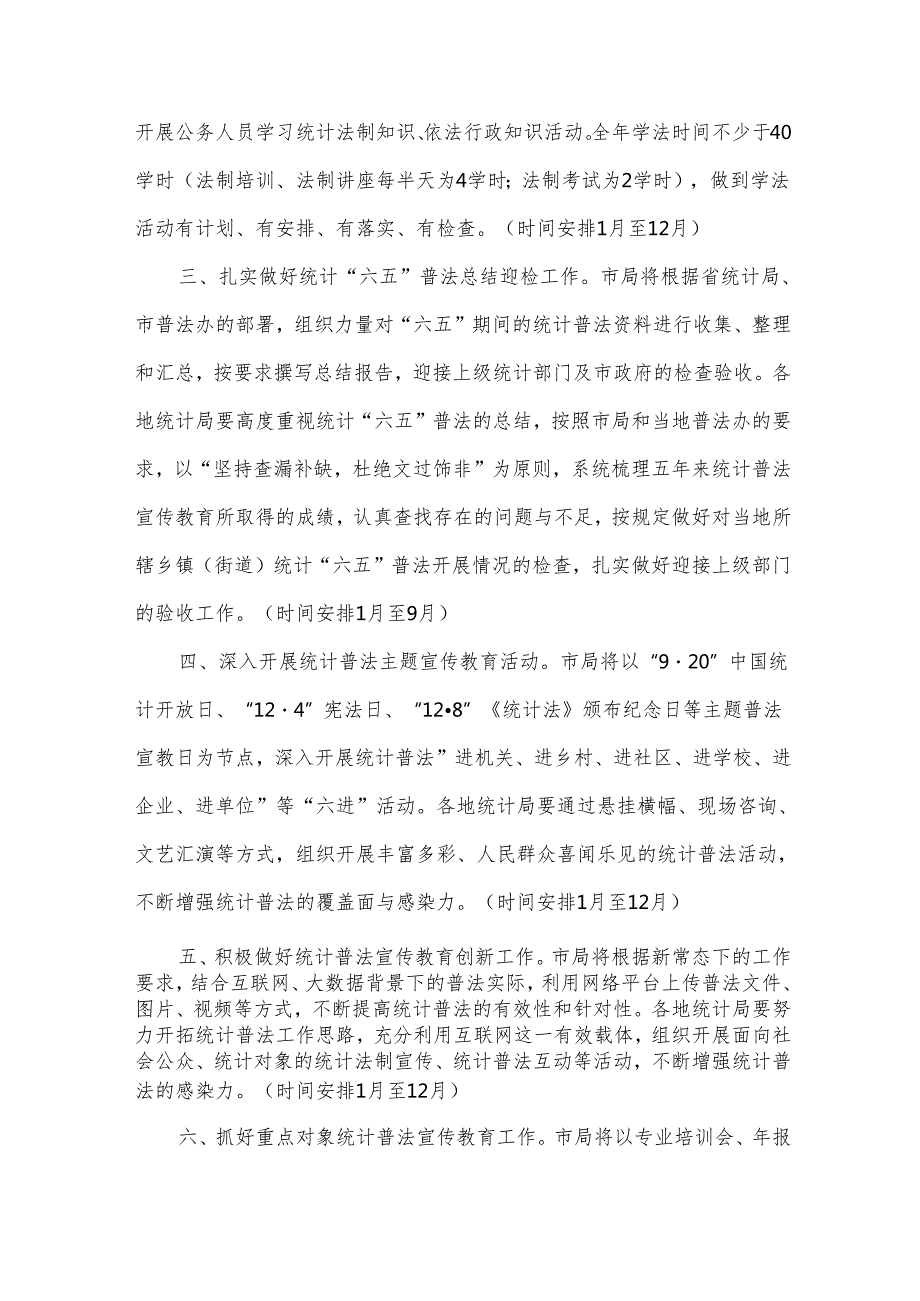 开展公务人员学习统计法制知识、依法行政知识活动。全年学法时间不少于40
学时（法制培训、法制讲座每半天为4学时；法制考试为2学时），做到学法
活动有计划、有安排、有落实、有检查。（时间安排1月至12月）
三、扎实做好统计“六五”普法总结迎检工作。市局将根据省统计局、
市普法办的部署，组织力量对“六五”期间的统计普法资料进行收集、整理
和汇总，按要求撰写总结报告，迎接上级统计部门及市政府的检查验收。各
地统计局要高度重视统计“六五”普法的总结，按照市局和当地普法办的要
求，以“坚持查漏补缺，杜绝文过饰非”为原则，系统梳理五年来统计普法
宣传教育所取得的成绩，认真查找存在的问题与不足，按规定做好对当地所
辖乡镇（街道）统计“六五”普法开展情况的检查，扎实做好迎接上级部门
的验收工作。（时间安排1月至9月）
四、深入开展统计普法主题宣传教育活动。市局将以“9・20”中国统
计开放日、“12・4”宪法日、“12•8”《统计法》颁布纪念日等主题普法
宣教日为节点，深入开展统计普法”进机关、进乡村、进社区、进学校、进
企业、进单位”等“六进”活动。各地统计局要通过悬挂横幅、现场咨询、
文艺汇演等方式，组织开展丰富多彩、人民群众喜闻乐见的统计普法活动，
不断增强统计普法的覆盖面与感染力。（时间安排1月至12月）
五、积极做好统计普法宣传教育创新工作。市局将根据新常态下的工作
要求，结合互联网、大数据背景下的普法实际，利用网络平台上传普法文件、
图片、视频等方式，不断提高统计普法的有效性和针对性。各地统计局要努
力开拓统计普法工作思路，充分利用互联网这一有效载体，组织开展面向社
会公众、统计对象的统计法制宣传、统计普法互动等活动，不断增强统计普
法的感染力。（时间安排1月至12月）
六、抓好重点对象统计普法宣传教育工作。市局将以专业培训会、年报